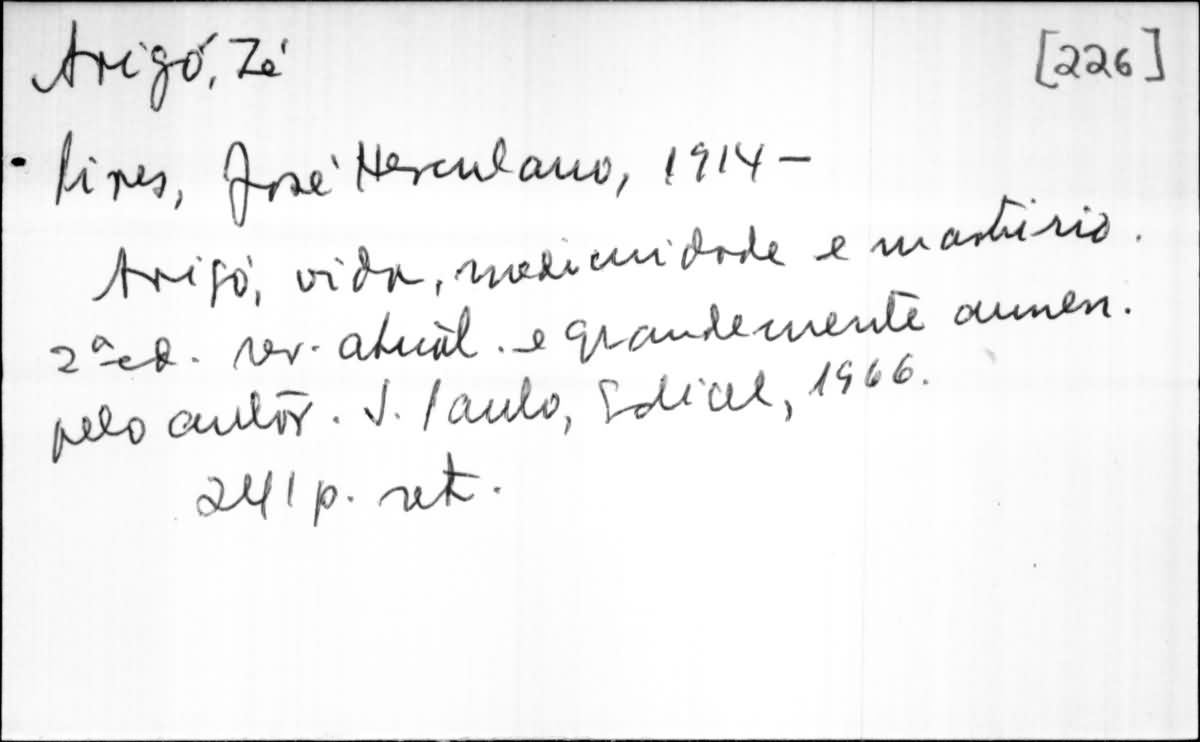 Arigó, Zé [226]
Pires, José Herculano, 1914 –
Arigó, vida, mediunidade e martírio.
2ª ed. rev. atual. e grandemente aumen.
pelo autor. S. Paulo, Edicel, 1966.
241 p. ret.